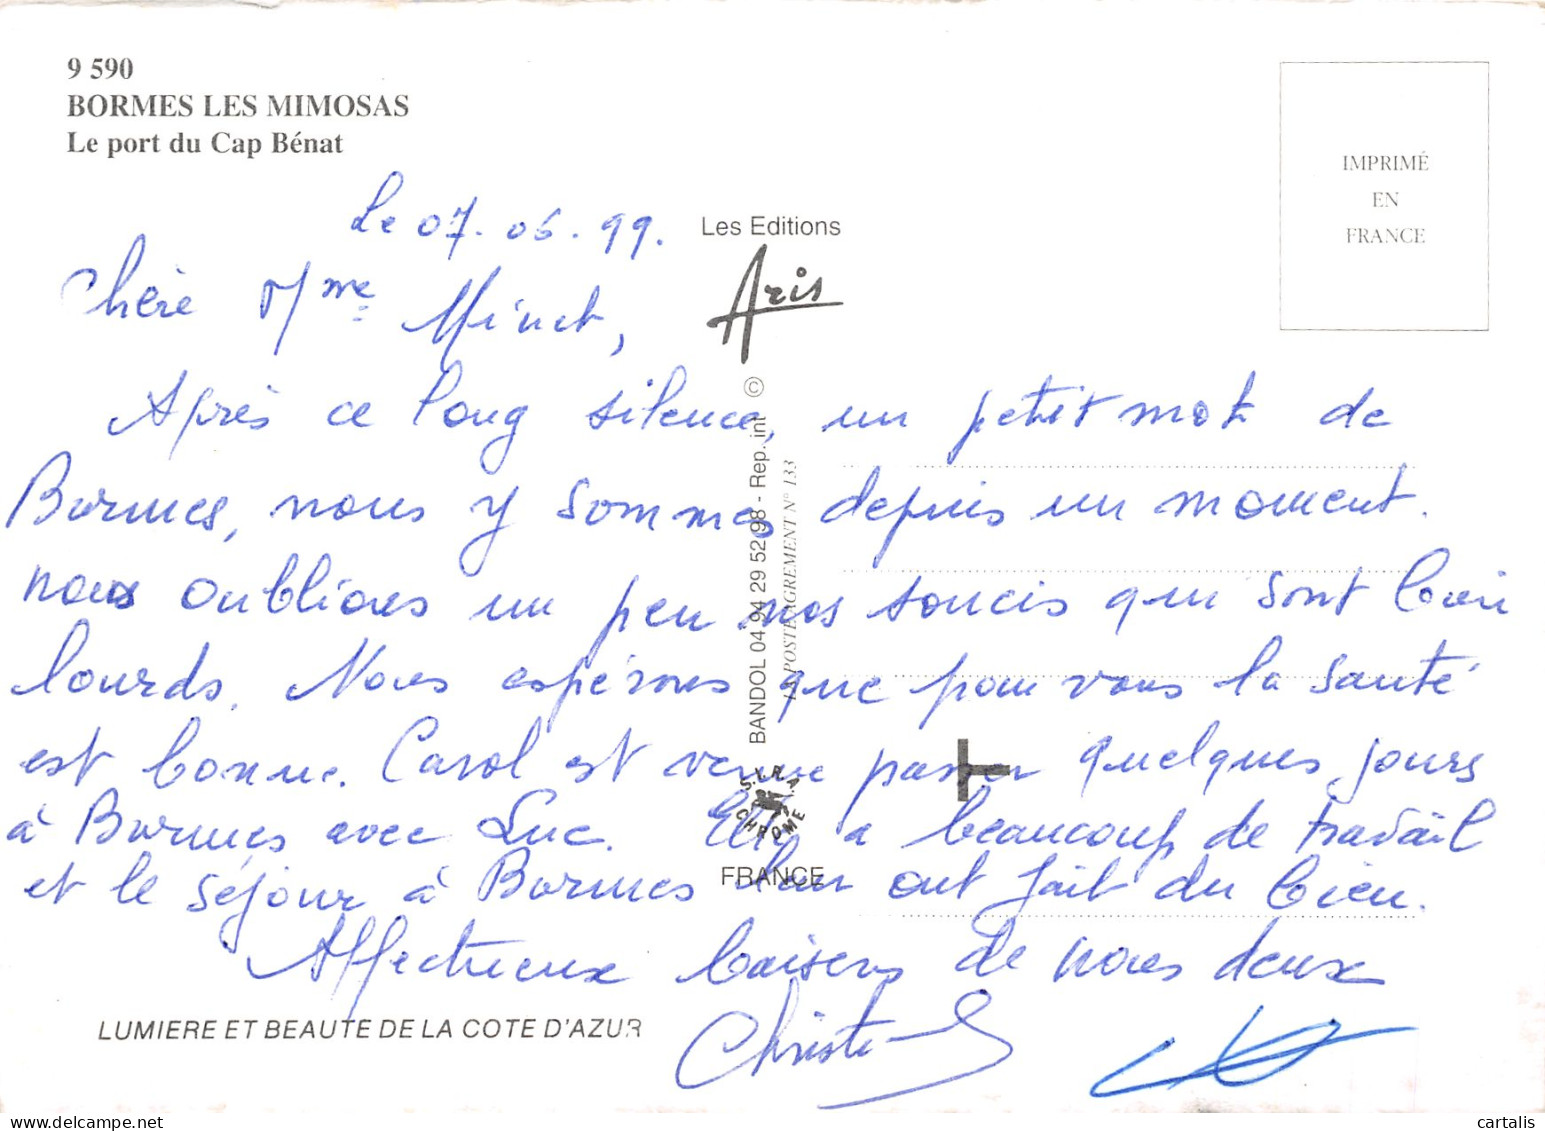 9 590
BORMES LES MIMOSAS
Le port du Cap Bénat
IMPRIMÉ
EN
FRANCE
Le 07.06.99.
Les Editions
Aris
Chère Mme Minet,
Après ce long silence, un petit mot de
Bormes, nous y sommes depuis un moment.
nous oublions un peu nos soucis qui sont bien
lourds. Nous espérons que pour vous la santé
est bonne. Carol est venue passer quelques jours
à Bormes avec Luc. Elle a beaucoup de travail
et le séjour à Bormes leur ont fait du bien.
Affectueux baisers de nous deux
Christ
BANDOL 04 94 29 52 98 - Rep. int ©
LA POSTE AGREMENT N° 133
S.I.R.A.
CHROME
FRANCE
LUMIERE ET BEAUTE DE LA COTE D'AZUR
www.cartalis.com